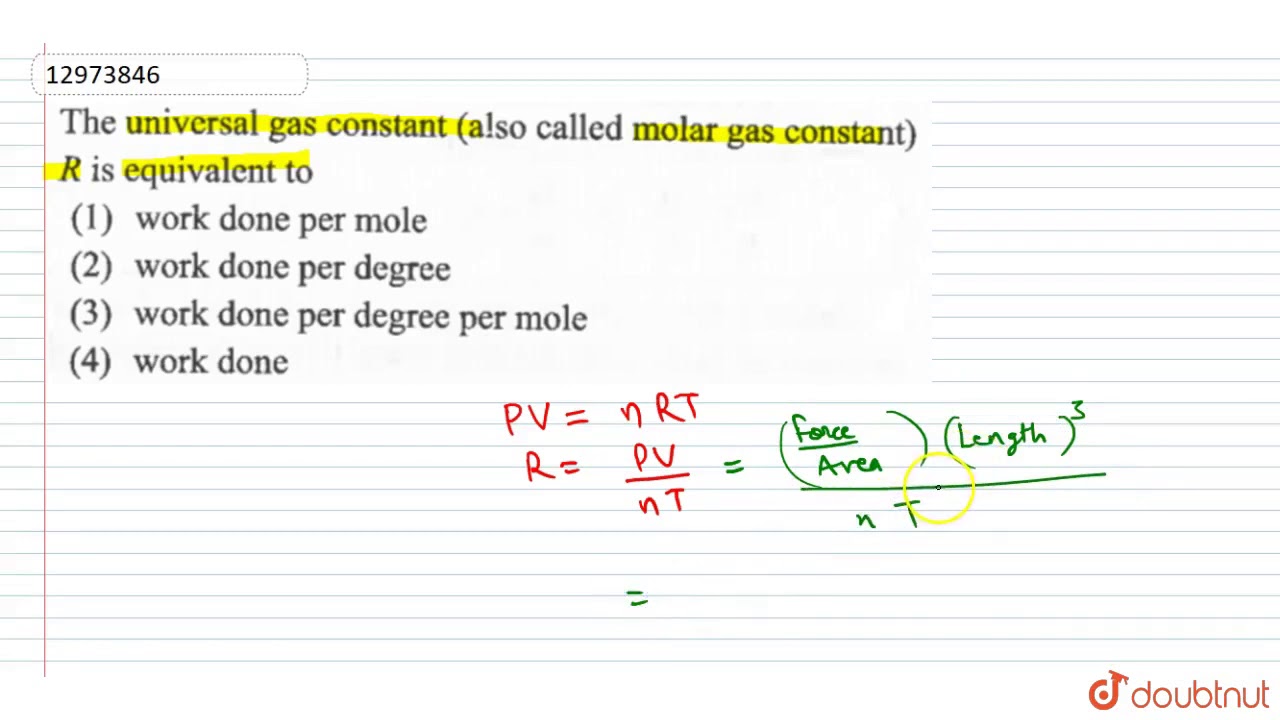 12973846
The universal gas constant (also called molar gas constant)
R is equivalent to
(1) work done per mole
(2) work done per degree
(3) work done per degree per mole
(4) work done
PV = nRT
R = PV / nT = (Force / Area) (Length)³ / n T
=
doubtnut